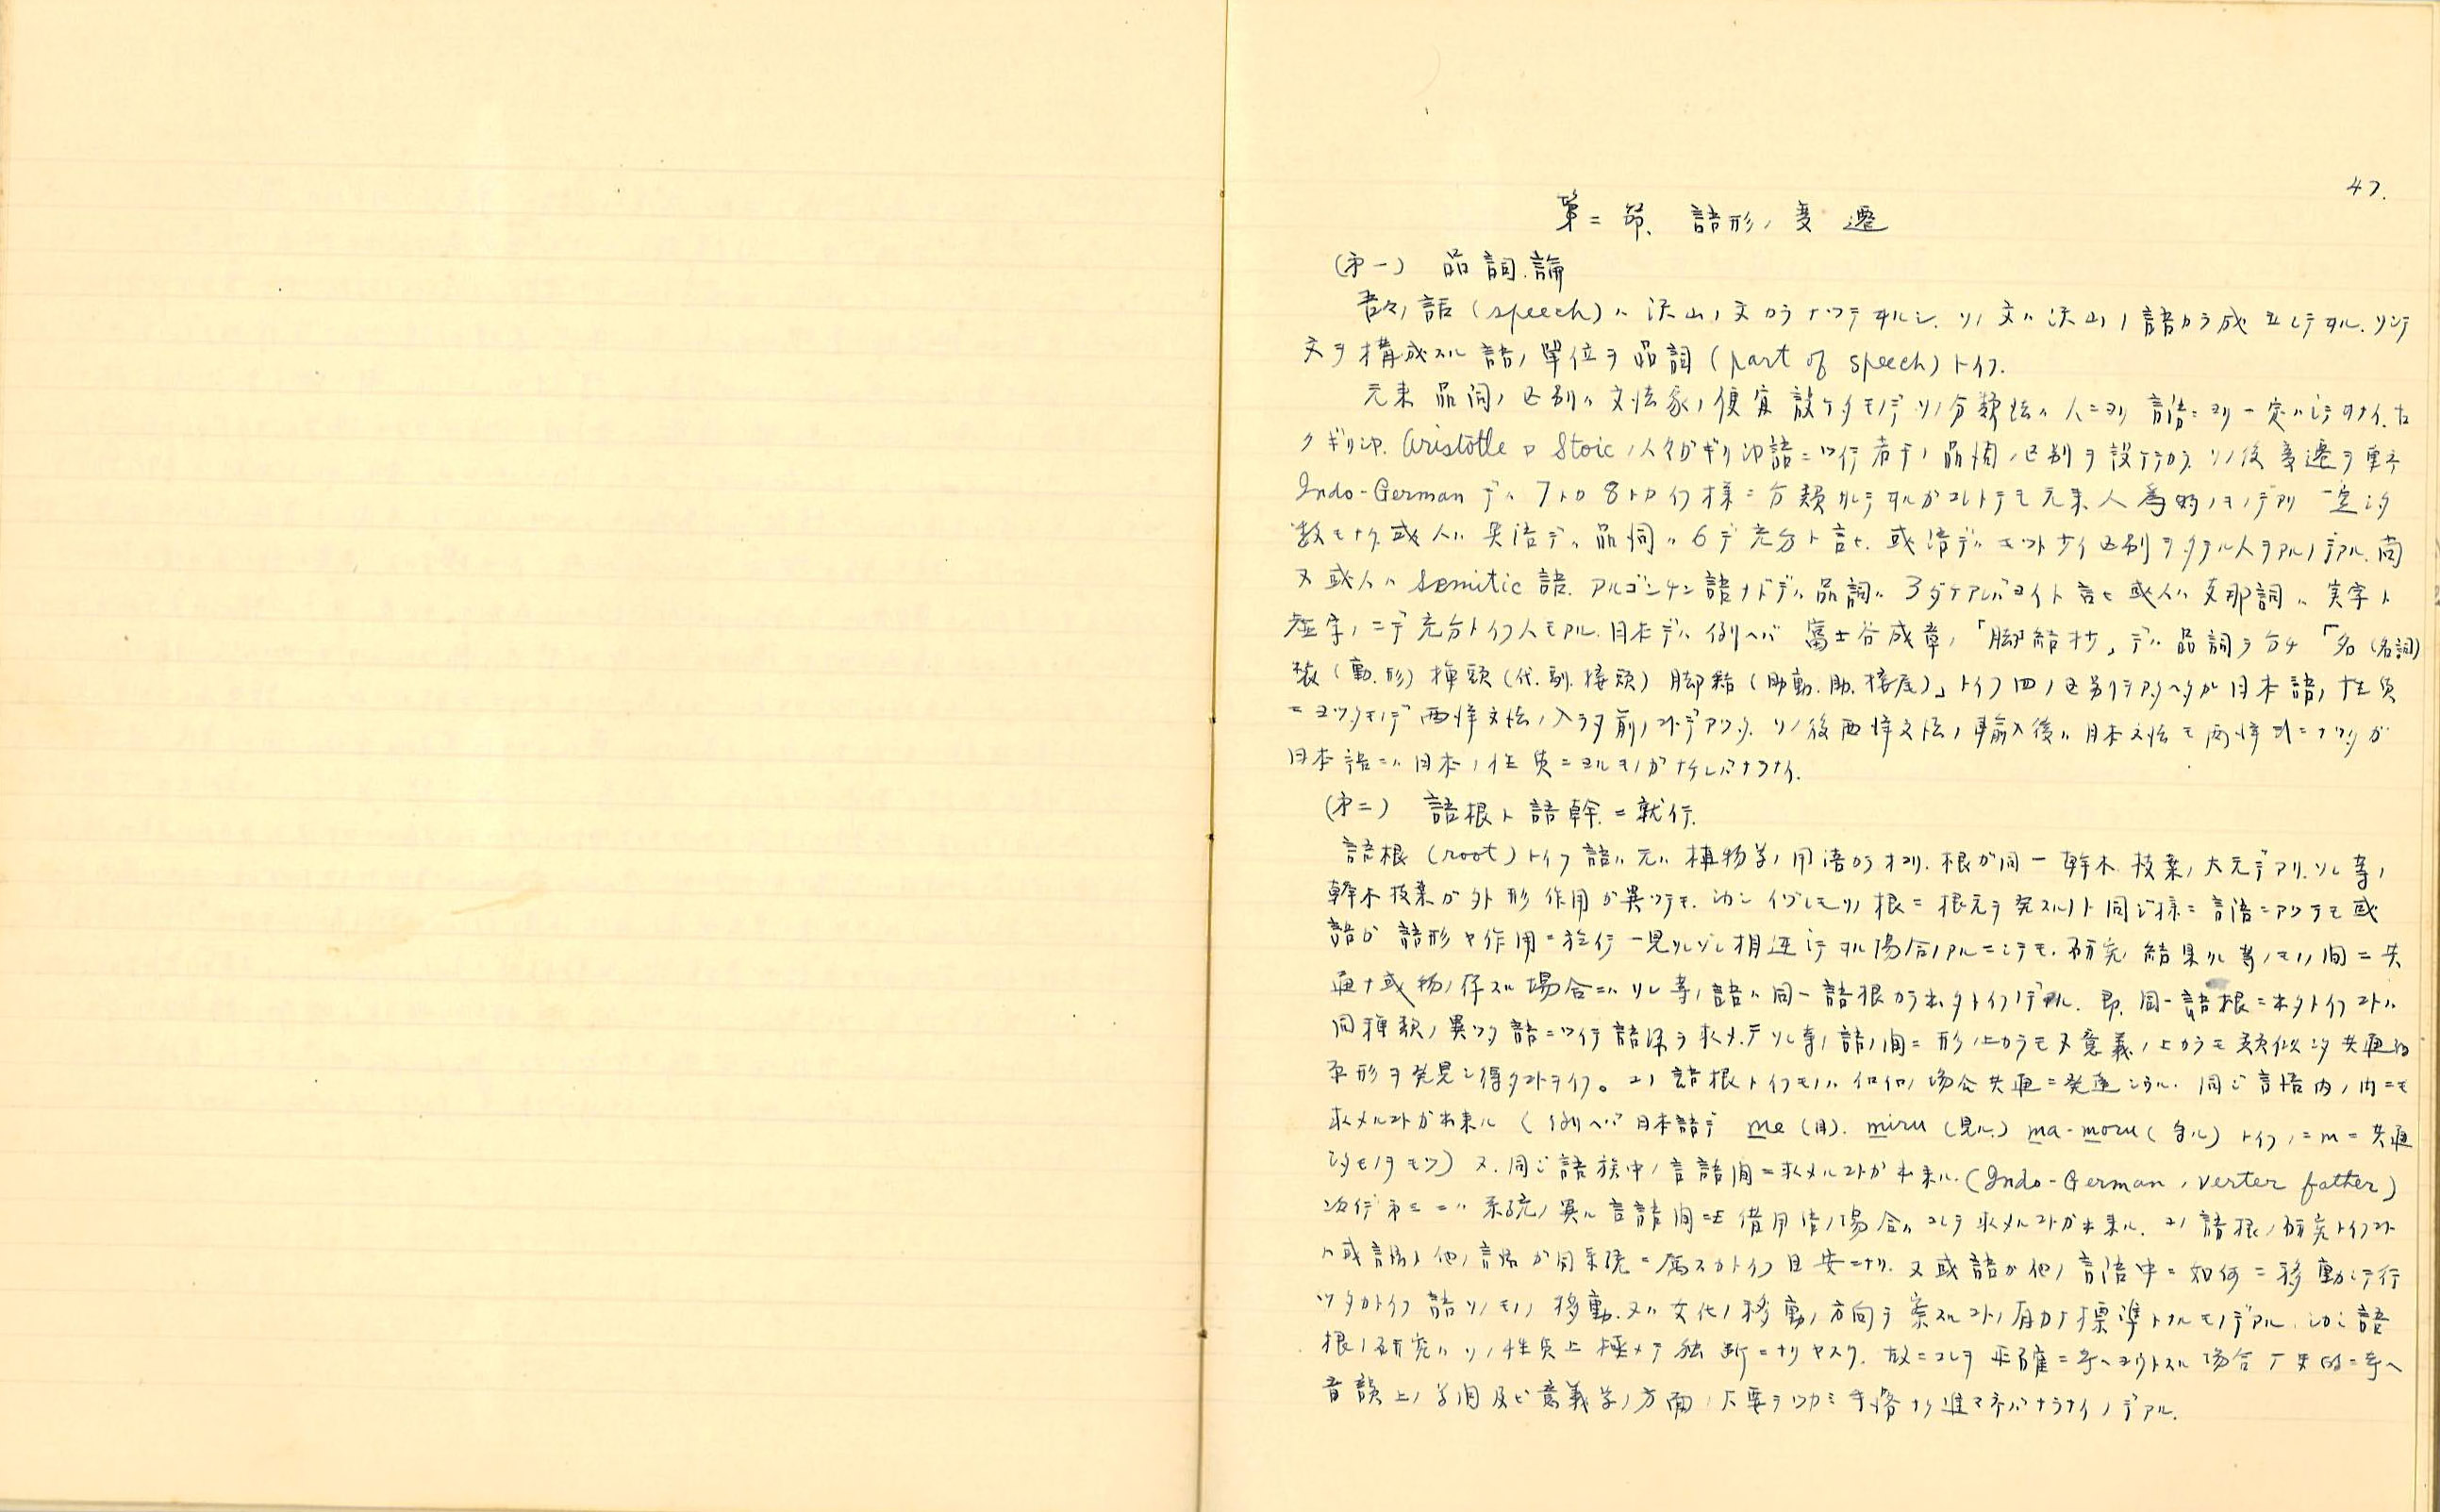 47.
第二節、語形ノ変遷
(第一) 品詞論
吾々ノ話 (speech) ハ沢山ノ文カラナツテヰルシ、ソノ文ハ沢山ノ語カラ成立シテヰル、ソシテ
文ヲ構成スル語ノ單位ヲ品詞 (part of speech) トイフ.
元来品詞ノ区別ハ文法家ノ便宜設ケタモノデソノ分類法ハ人ニヨリ言語ニヨリ一定ハシテヰナイ.古
クギリシヤ. Aristotle ヤ Stoic ノ人々ガギリシヤ語ニツイテ若干ノ品詞ノ区別ヲ設ケテカラ ソノ後変遷ヲ重ネ
Indo-German デハ 7トカ 8トカイフ様ニ分類サレテヰルガコレトテモ元来人為的ノモノデアリ一定シタ
数モナク或人ハ英語デハ品詞ハ6デ充分ト言ヒ. 或語デハモツト少イ区別ヲタテル人ヲアルノデアル.尚
又或人ハ Semitic 語. アルゴンキン語ナドデハ品詞ハ 3ダケアレバヨイト言ヒ或人ハ支那詞ハ実字ト
虚字ノ二デ充分トイフ人モアル. 日本デハ例ヘバ 富士谷成章ノ「脚結抄」デハ品詞ヲ分チ「名(名詞)
装(動.形) 挿頭(代.副.接頭) 脚結(助動.助.接尾)」トイフ四ノ区別ヲ 日本語ノ性質
ニヨツタモノデ西洋文法ノ入ラヌ前ノコトデアツタ. ソノ後西洋文法ノ輸入後ハ日本文法モ西洋式ニナツタガ
日本語ニハ日本ノ性質ニヨルモノガナケレバナラナイ.
(第二) 語根ト語幹ニ就イテ.
語根 (root) トイフ語ハ元ハ植物学ノ用語カラオコリ. 根ガ同一幹木枝葉ノ大元デアリ.ソレ等ノ
幹木枝葉ガ外形作用ガ異ツテモ. シカシイヅレモソノ根ニ根元ヲ発スルノト同ジ様ニ言語ニアツテモ或
語ガ語形ヤ作用ニ於イテ一見 相違シテヰル場合ノアルニシテモ. 研究ノ結果ソレ等ノモノノ間ニ共
通ナ或物ノ存スル場合ニハソレ等ノ語ハ同一語根カラ出タトイフノデアル. 即. 同一語根ニ出タトイフコトハ
同種類ノ異ツタ語ニツイテ語源ヲ求メテソレ等ノ語ノ間ニ形ノ上カラモ又意義ノ上カラモ類似シタ共通ノ
原形ヲ発見シ得タコトヲイフ。コノ語根トイフモノハ 場合共通ニ発達シウル. 同ジ言語内ノ内ニモ
求メルコトガ出来ル (例ヘバ日本語デ me (目). miru (見ル) ma-moru (守ル) トイフノニ m ニ共通
シタモノヲモツ) 又. 同ジ語族中ノ言語間ニ求メルコトガ出来ル. (Indo-German ノ verter father)
次イデ第三ニハ系統ノ異ル言語間ニモ借用語ノ場合ハコレヲ求メルコトガ出来ル. コノ語根ノ研究トイフコト
ハ或言語ト他ノ言語ガ同系統ニ属スカトイフ目安トナリ. 又或語ガ他ノ言語中ニ如何ニ移動シテ行
ツタカトイフ語ソノモノノ移動. 又ハ文化ノ移動ノ方向ヲ察スルコトノ有力ナ標準トナルモノデアル. シカシ語
根ノ研究ハソノ性質上極メテ独断ニナリヤスク. 故ニコレヲ正確ニ考ヘヨウトスル場合 ニ考ヘ
音韻上ノ学問及ビ意義学ノ方面ノ大要ヲツカミ手落ナク進マネバナラナイノデアル.